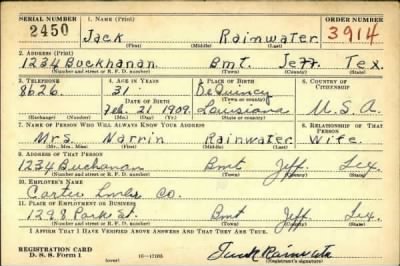 SERIAL NUMBER 1. NAME (Print) ORDER NUMBER
2450 Jack Rainwater 3914
(First) (Middle) (Last)
2. ADDRESS (Print)
1234 Buckhanan. Bmt. Jeff. Tex.
(Number and street or R. F. D. number) (Town) (County) (State)
3. TELEPHONE 4. AGE IN YEARS 5. PLACE OF BIRTH 6. COUNTRY OF CITIZENSHIP
8626. 31. DeQuincy
(Town or county)
DATE OF BIRTH
Feb. 21 1909. Louisiana U.S.A.
(Exchange) (Number) (Mo.) (Day) (Yr.) (State or country)
7. NAME OF PERSON WHO WILL ALWAYS KNOW YOUR ADDRESS 8. RELATIONSHIP OF THAT PERSON
Mrs. Narrin Rainwater Wife.
(Mr., Mrs., Miss) (First) (Middle) (Last)
9. ADDRESS OF THAT PERSON
1234 Buchanan Bmt Jeff. Tex.
(Number and street or R. F. D. number) (Town) (County) (State)
10. EMPLOYER'S NAME
Carter Lmbr Co.
11. PLACE OF EMPLOYMENT OR BUSINESS
1298 Park St. Bmt Jeff. Tex.
(Number and street or R. F. D. number) (Town) (County) (State)
I AFFIRM THAT I HAVE VERIFIED ABOVE ANSWERS AND THAT THEY ARE TRUE.
REGISTRATION CARD
D. S. S. Form 1 (over) 16—17105 Jack Rainwater
(Registrant's signature)